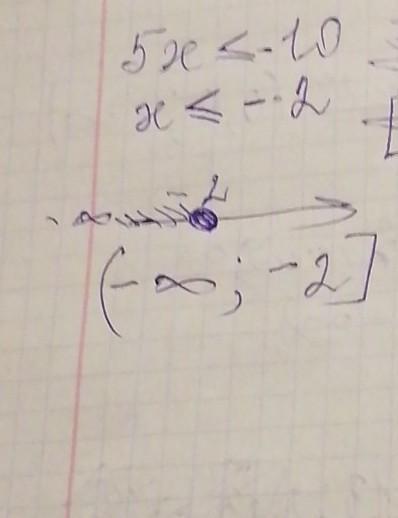 5x ≤ -10
x ≤ -2
-2
-∞
(-∞; -2]